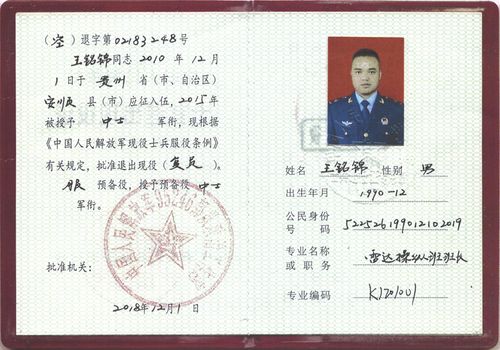 (空)退字第02183248号
王铭锦同志2010年12月
1日于贵州省(市、自治区)
县(市)应征入伍,2015年
被授予 中士 军衔,现根据
《中国人民解放军现役士兵服役条例》
有关规定,批准退出现役(复员)。
服 预备役,授予预备役 中士
军衔。
批准机关:
2018年12月1日
中国人民解放军
姓名 王铭锦 性别 男
出生年月 1990-12
公民身份
号码 522526199012102019
专业名称
或职务 雷达操纵班班长
专业编码 K1701001